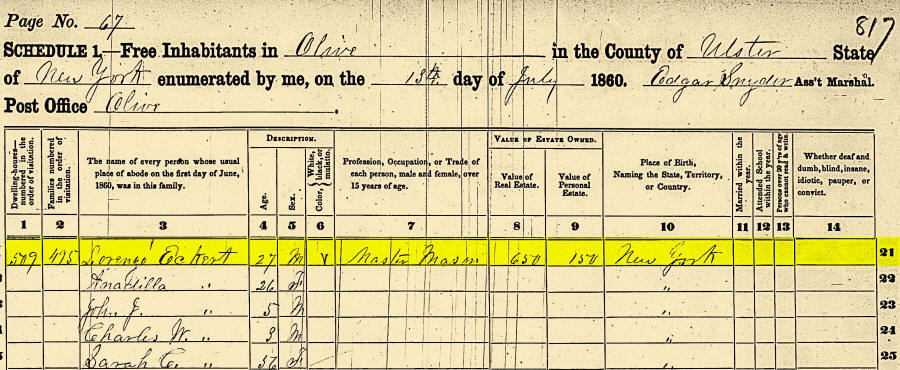 Page No. 67
817
SCHEDULE 1.—Free Inhabitants in Olive in the County of Ulster State
of New York enumerated by me, on the 13th day of July 1860. Edgar Snyder Ass't Marshal.
Post Office Olive.
Dwelling-houses—numbered in the order of visitation.
Families numbered in the order of visitation.
The name of every person whose usual place of abode on the first day of June, 1860, was in this family.
DESCRIPTION.
Age.
Sex.
Color, White, black, or mulatto.
Profession, Occupation, or Trade of each person, male and female, over 15 years of age.
VALUE OF ESTATE OWNED.
Value of Real Estate.
Value of Personal Estate.
Place of Birth, Naming the State, Territory, or Country.
Married within the year.
Attended School within the year.
Persons over 20 y'rs of age who cannot read & write.
Whether deaf and dumb, blind, insane, idiotic, pauper, or convict.
1 2 3 4 5 6 7 8 9 10 11 12 13 14
509 495 Lorenzo Eckert 27 M Master Mason 650 150 New York 21
26 F " 22
John J. " 5 M " 23
Charles W. " 3 M " 24
Sarah C. " F " 25